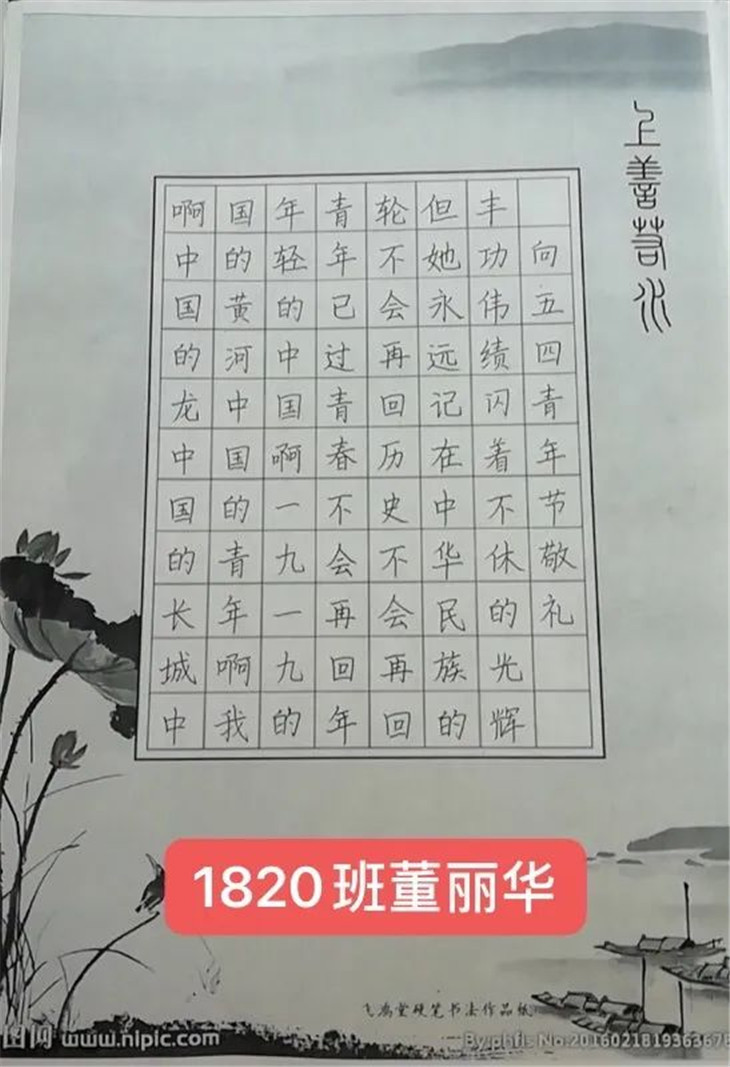 上善若水
啊中国的龙中国的长城中
国的黄河中国的青年啊我
年轻的中国啊一九一九的
青年已过青春不会再回年
轮不会再回历史不会再回
但她永远记在中华民族的
丰功伟绩闪着不休的光辉
向五四青年节敬礼
1820班董丽华
飞鸿堂硬笔书法作品纸
图网 www.nipic.com
By:phfls No:2016021819363678